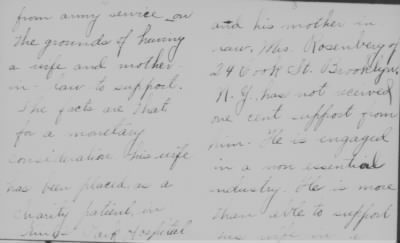 from army service on
the grounds of having
a wife and mother-
in-law to support.
The facts are that
for a monetary
consideration his wife
has been placed as a
charity patient, in
Park Hospital
and his mother in
law, Mrs. Rosenberg of
24 Cook St. Brooklyn,
N. Y. has not received
one cent support from
him. He is engaged
in a non essential
industry. He is more
than able to support
his wife in a